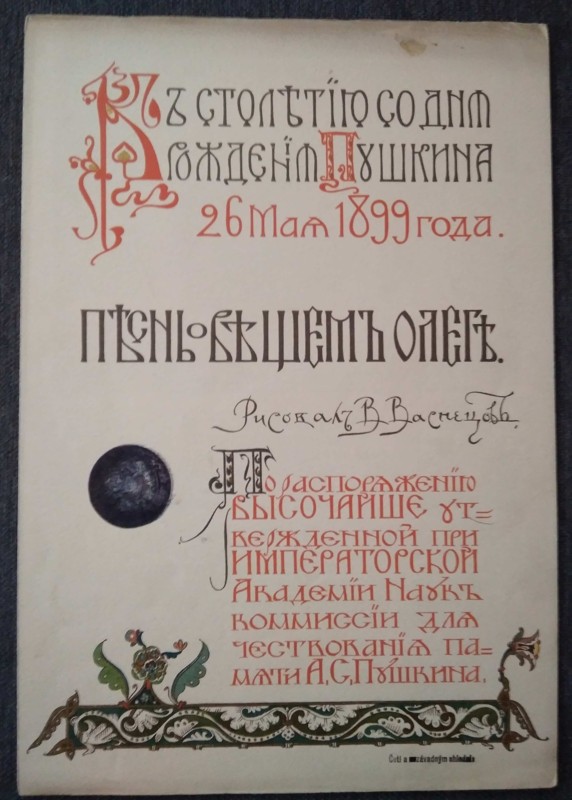 Къ столѣтїю со дня
рожденїя Пушкина
26 Мая 1899 года.
Пѣснь о вѣщемъ Олегѣ.
Рисовалъ В. Васнецовъ.
По распоряженїю
ВЫСОЧАЙШЕ ут=
вержденной при
ИМПЕРАТОРСКОЙ
Академїи Наукъ
коммиссїи для
чествованїя па=
мяти А. С. Пушкина.
závadným